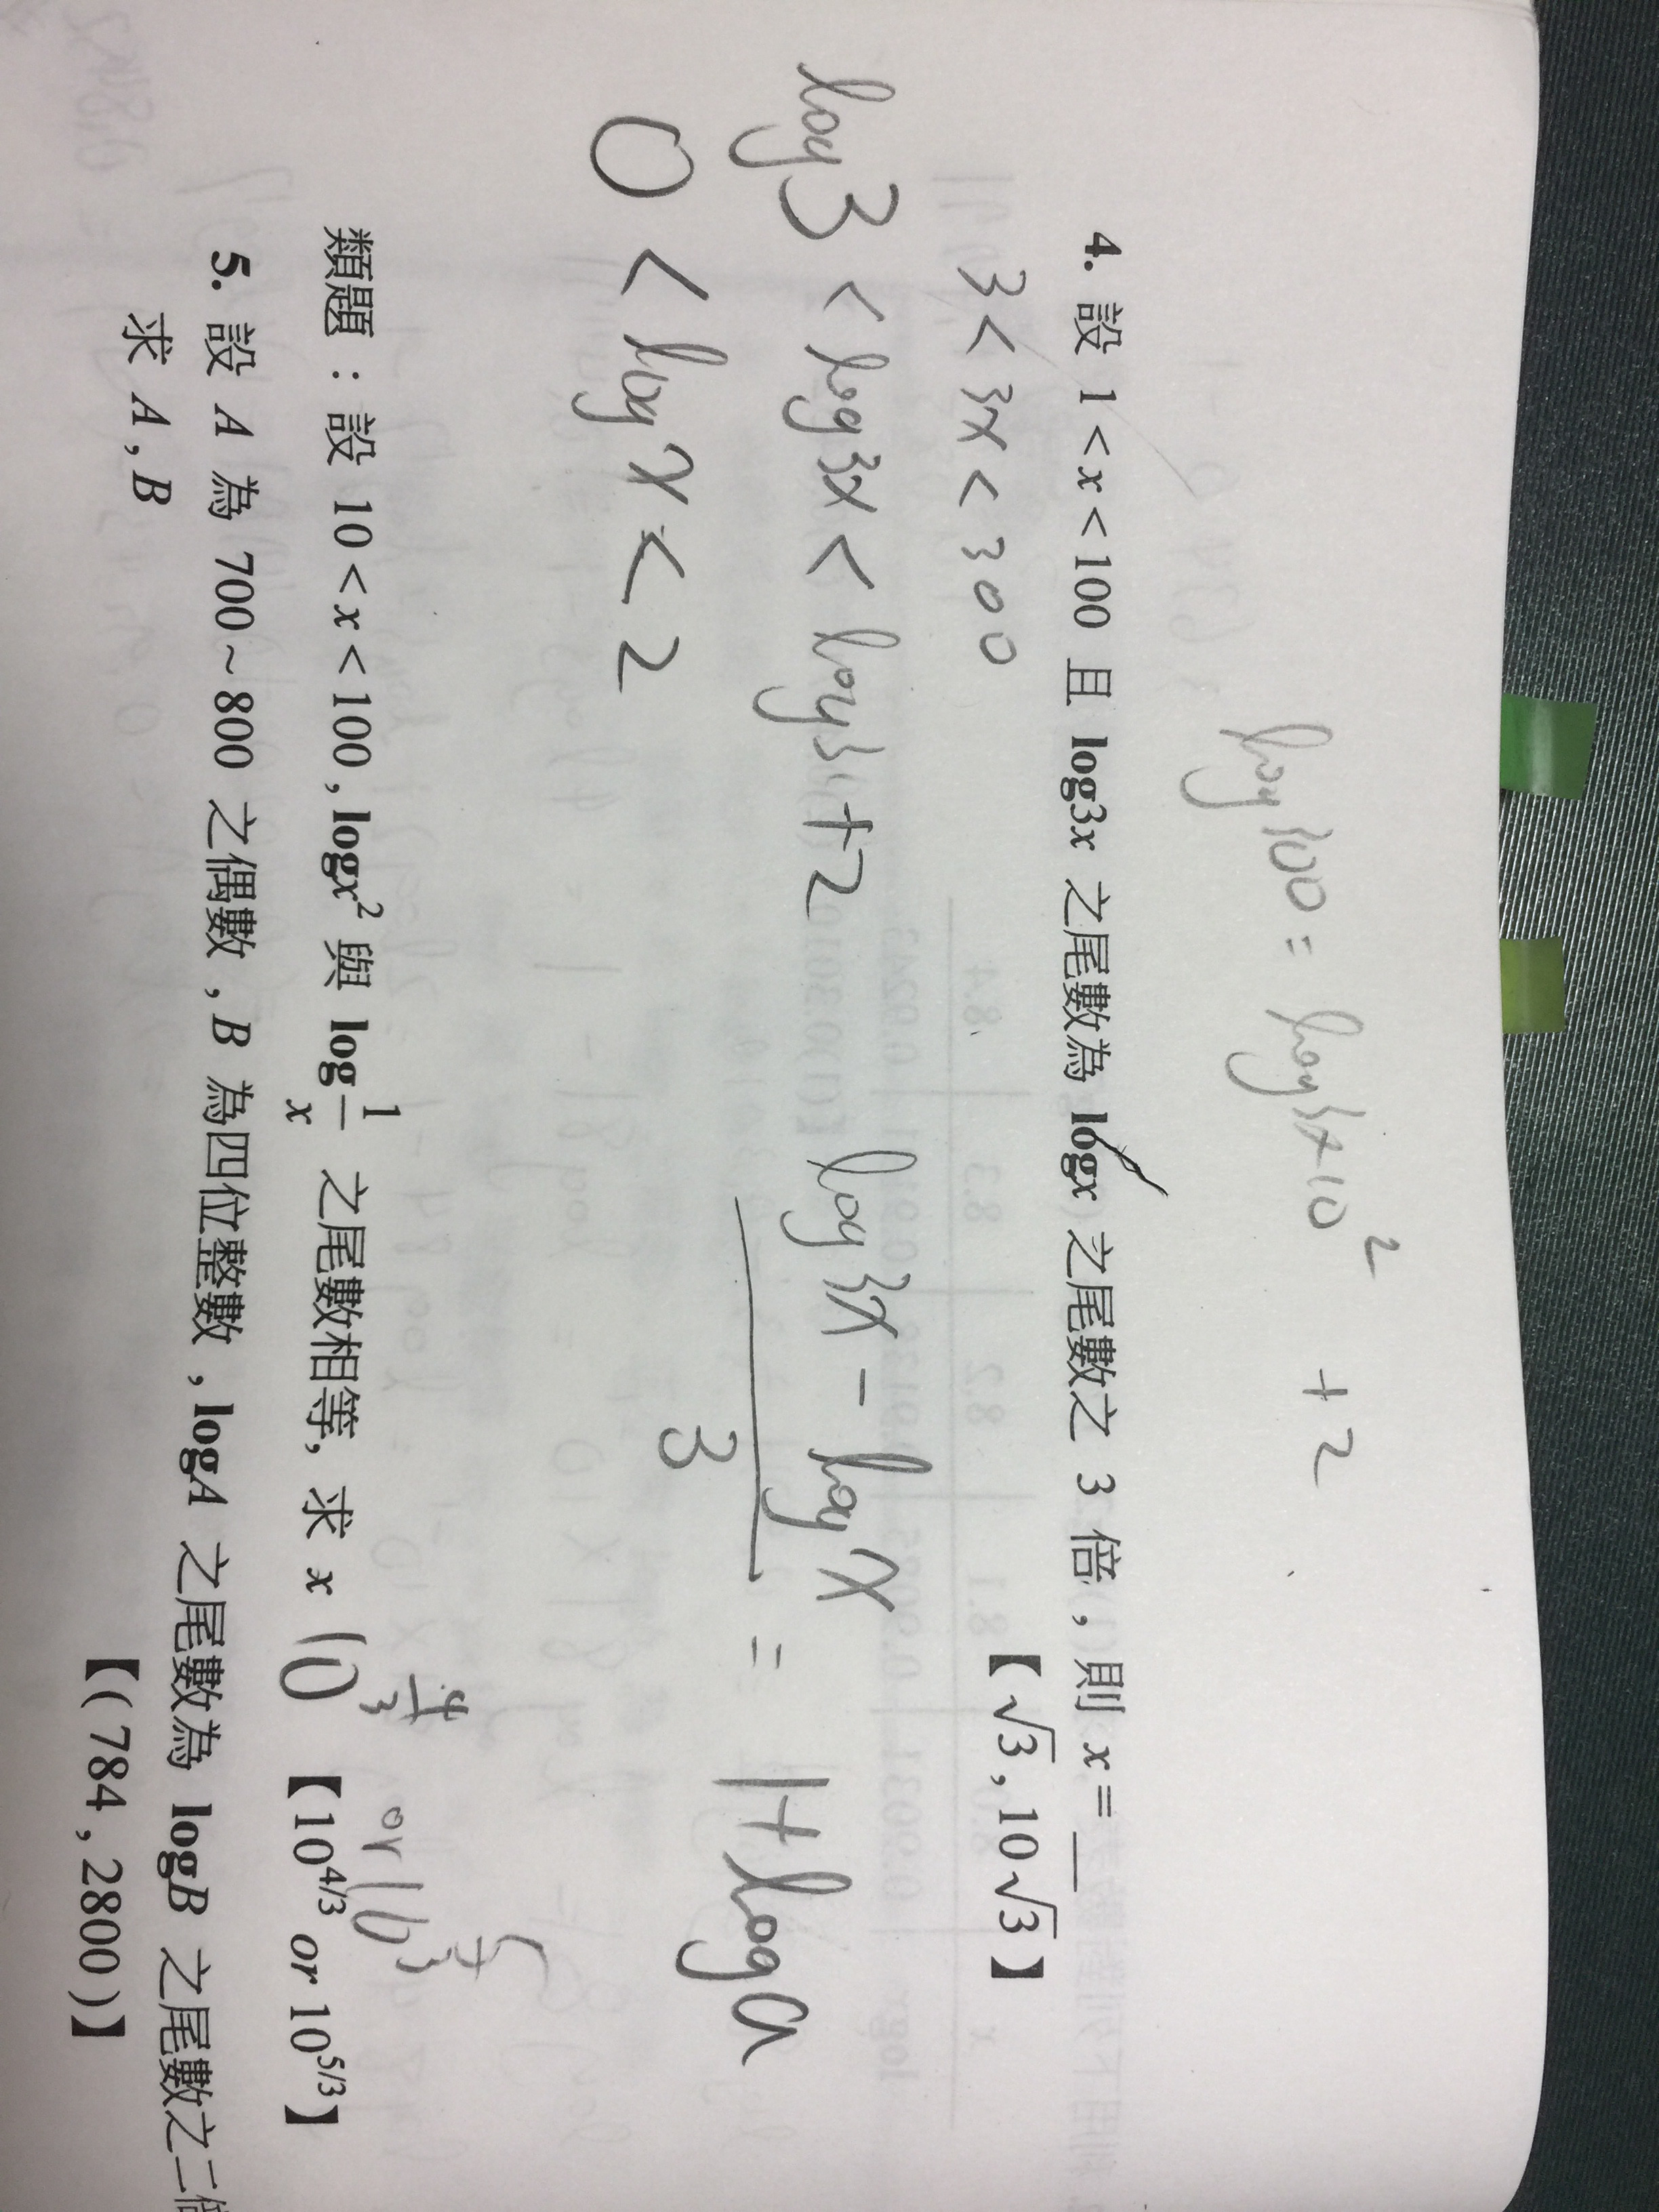 log300 = log3×10² +2
4. 設 1<x<100 且 log3x 之尾數為 logx 之尾數之 3 倍,則 x=__
【√3,10√3】
3<3x<300
log3 < log3x < log3+2
log3x - logx / 3 = 1+loga
0 < logx < 2
類題:設 10<x<100,logx² 與 log 1/x 之尾數相等,求 x 10^4/3 or 10^5/3 【10^4/3 or 10^5/3】
5. 設 A 為 700~800 之偶數,B 為四位整數,logA 之尾數為 logB 之尾數之二倍
求 A,B
【(784,2800)】